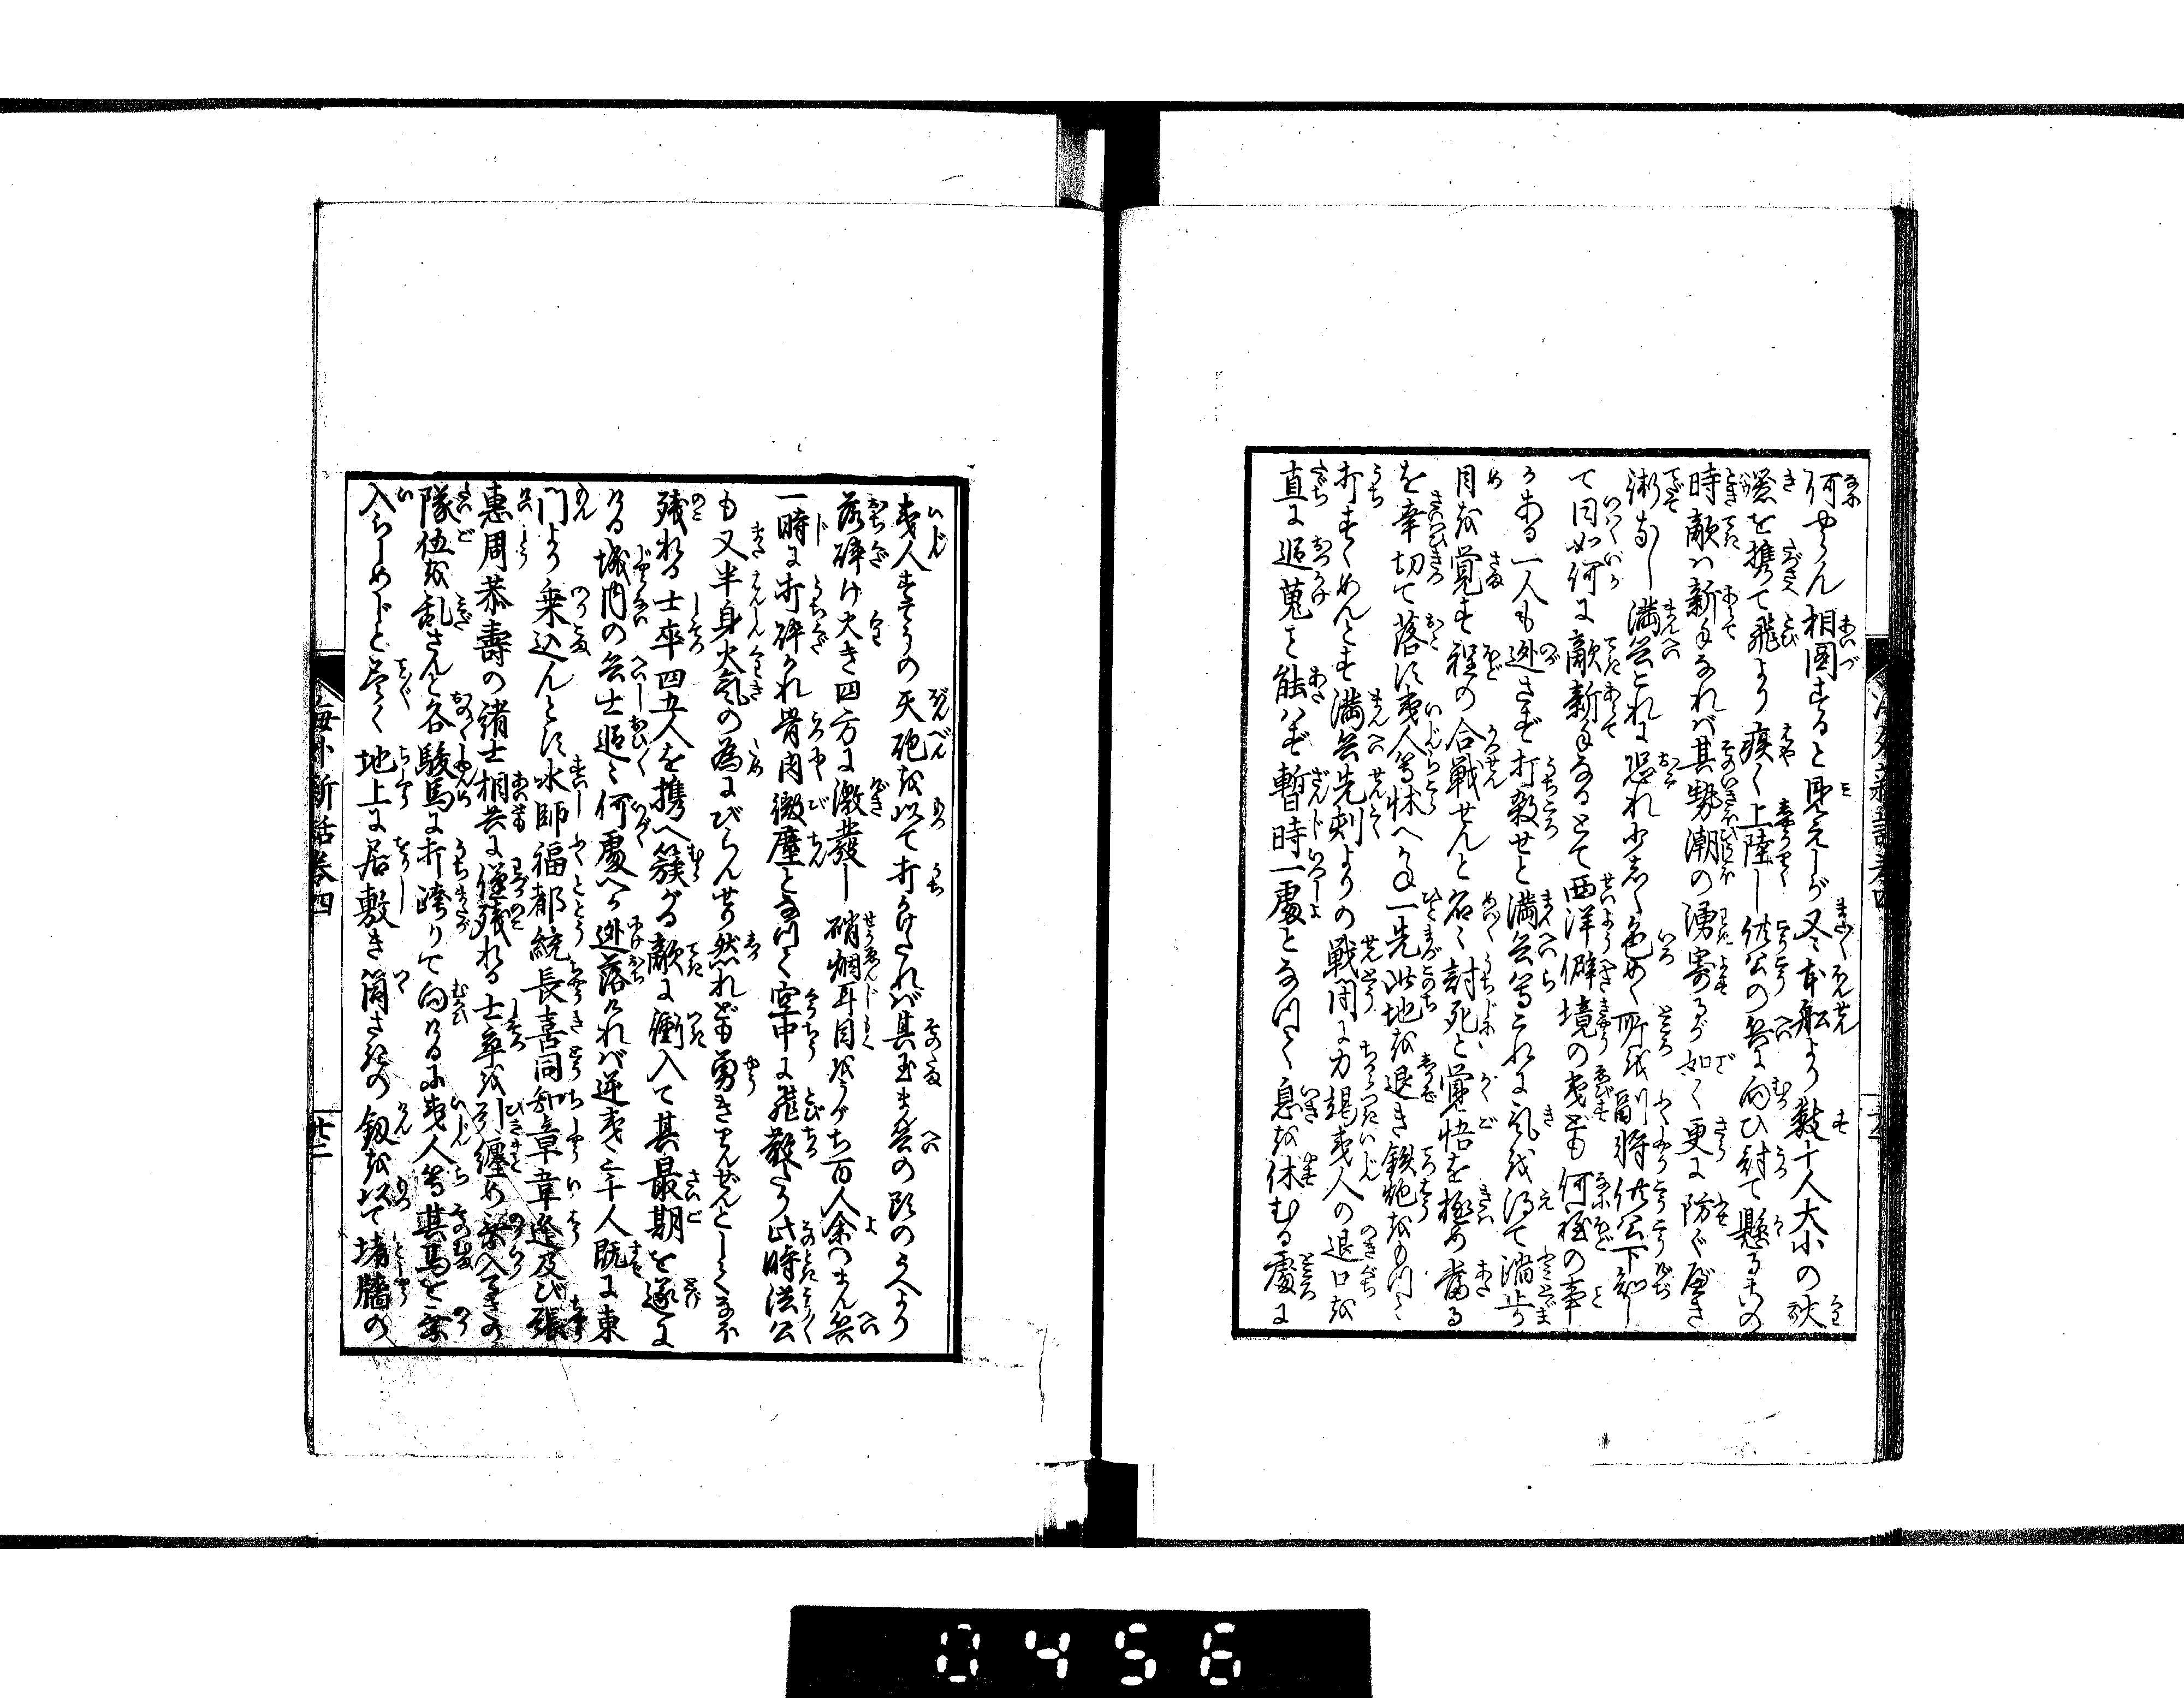 何やらん相図すると見えしが又々本舩より数十人大小の火
器を携て飛より疾く上陸し佐公の兵に向ひ討て懸るその
時敵ハ新手なれバ其勢潮の湧寄るが如く更に防ぐべき
術なし満兵これに恐れ少しく色めく所を副将佐公下知し
て曰如何に敵新手なるとて西洋僻境の夷ども何程の事
かある一人も迯さず打殺せと満兵等これに気を得て満歩
目を覚す程の合戦せんと各々討死と覚悟を極め當る
を幸切て落す夷人等怺へかね一先此地を退き鉄炮をもつて
打すくめんとす満兵先刻よりの戦闘に力竭夷人の退口を
直に追蒐る能ハず暫時一處となつて息を休むる處に
夷人すそうの天砲を以て打かけたれバ其玉まん兵の頭のうへより
落砕け火き四方に激発し硝烟耳目をうがち百人余のまん兵
一時に打砕かれ骨肉微塵となつて空中に飛散たり此時洪公
も又半身火気の為にびらんせり然れども勇きやんぜんとしてなほ
残れる士卒四五人を携へ簇がる敵に衝入て其最期を遂に
ける城内の兵士追々何處へか迯落けれバ逆夷三千人既に東
門より乗込んとす水師福都統長喜同知章韋逢及び張
惠周恭壽の緒士相共に僅残れる士卒を引纏め乗入るきの
隊伍を乱さんと各駿馬に打跨りて向けるに夷人等其馬を乗
入らしめじと尽く地上に居敷き筒さきの釼を以て堵牆の
海外新話巻四
廿二
0456